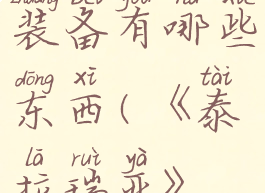 装备有哪些
dōng xī tài
东西(《泰
lā ruì yà
拉瑞亚》